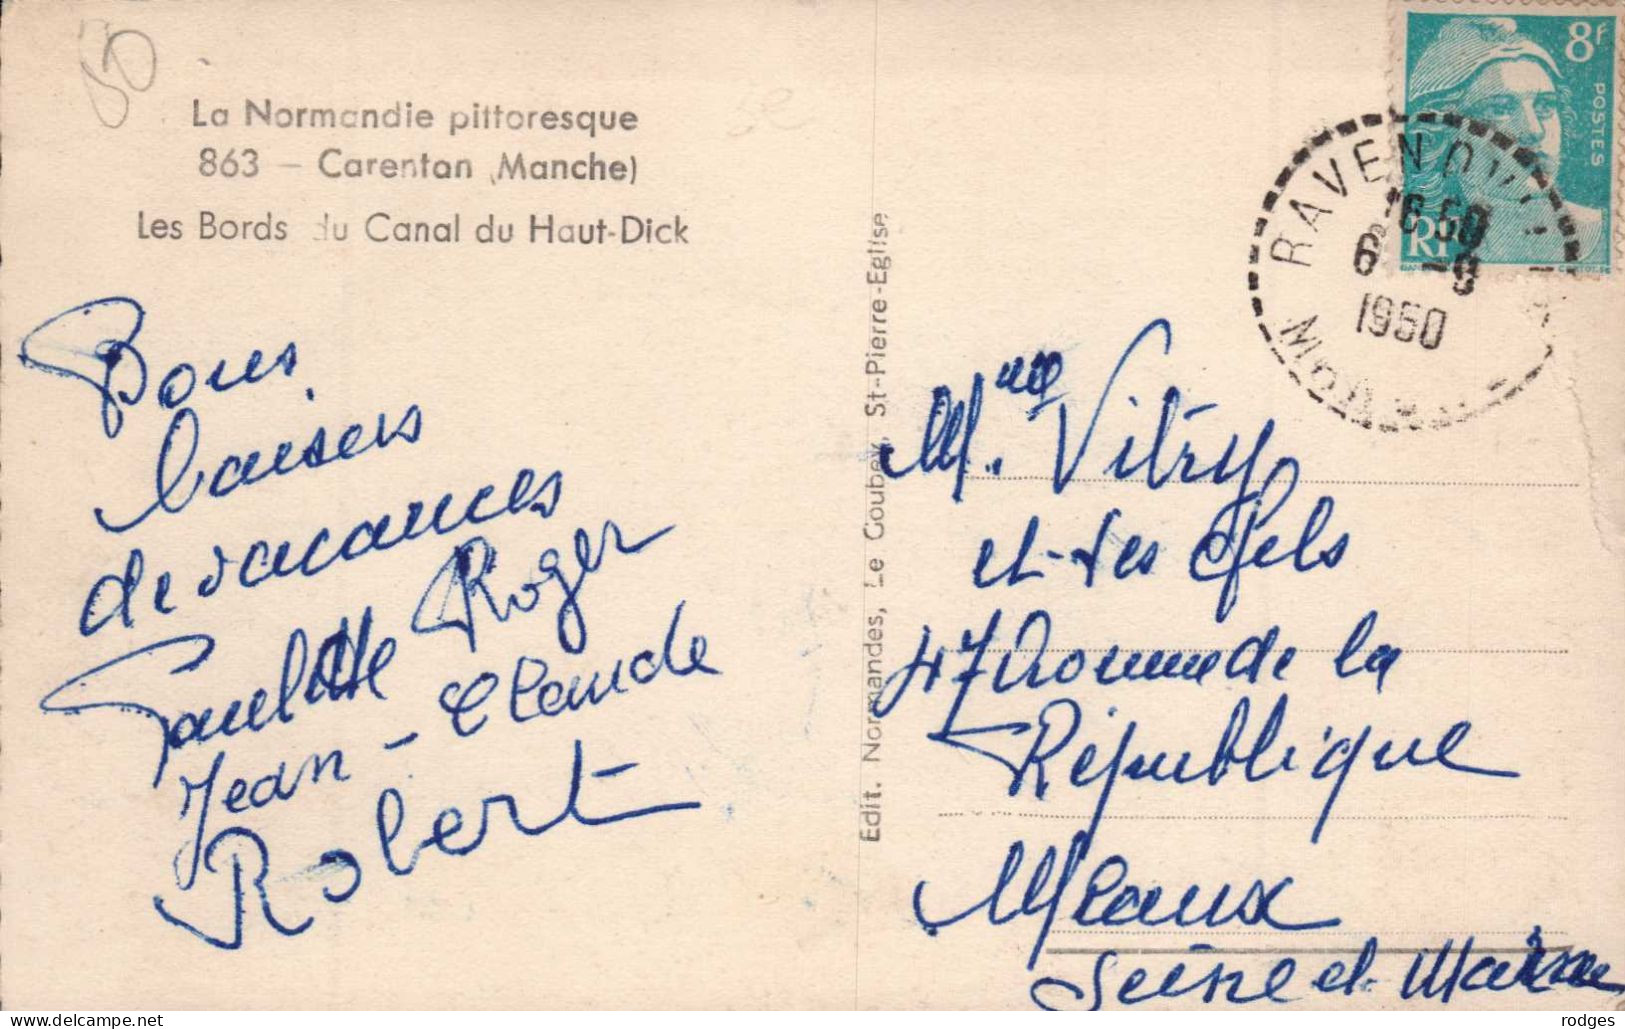 50
La Normandie pittoresque
863 - Carentan (Manche)
Les Bords du Canal du Haut-Dick
Bons
baisers
de vacances
Paulette Roger
Jean-Claude
Robert
Edit. Normandes, Le Goubey, St-Pierre-Eglise
8F
POSTES
RF
RAVENOVI
16 50
6 -9
1950
Mme Vitry
et ses fils
47
de la
République
Meaux
Seine et Marne
rodges